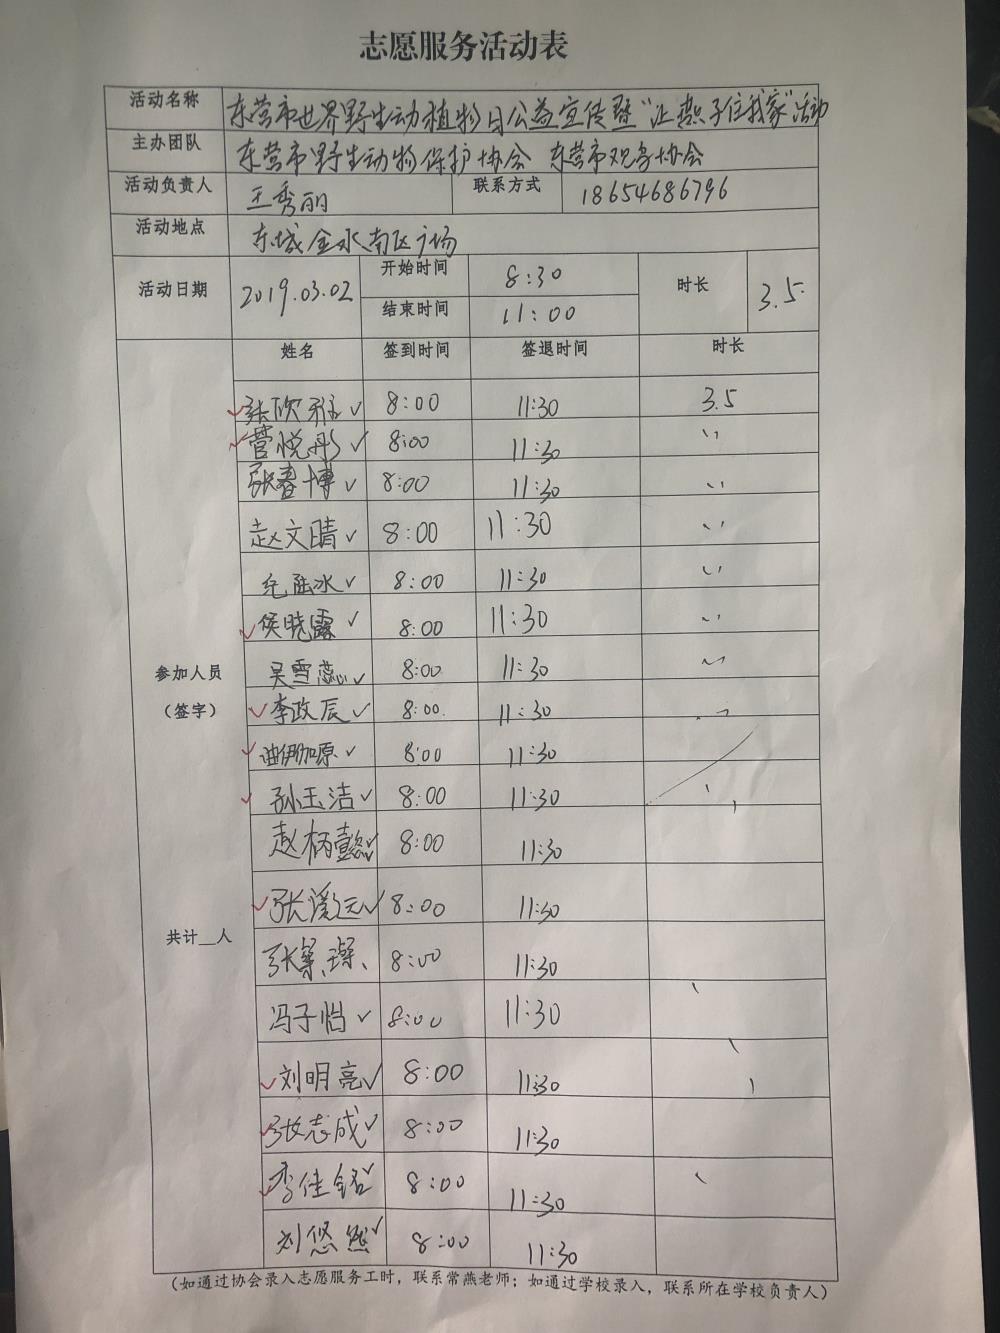 志愿服务活动表
活动名称 东营市世界野生动植物日公益宣传暨"让燕子住我家"活动
主办团队 东营市野生动物保护协会 东营市观鸟协会
活动负责人 王秀丽 联系方式 18654686796
活动地点 东城金水南区广场
活动日期 2019.03.02 开始时间 8:30 时长 3.5
结束时间 11:00
姓名 签到时间 签退时间 时长
张欣雅 ✓ 8:00 11:30 3.5
菅悦彤 ✓ 8:00 11:30 〃
张春博 ✓ 8:00 11:30 〃
赵文晴 ✓ 8:00 11:30 〃
纪陆冰 ✓ 8:00 11:30 〃
侯晓露 ✓ 8:00 11:30 〃
参加人员 吴雪蕊 ✓ 8:00 11:30 〃
(签字) 李政辰 ✓ 8:00 11:30 〃
曲伊加原 ✓ 8:00 11:30
孙玉洁 ✓ 8:00 11:30
赵柄懿 ✓ 8:00 11:30
张溪远 ✓ 8:00 11:30
共计__人 张粲璨 8:00 11:30
冯子怡 ✓ 8:00 11:30
刘明亮 ✓ 8:00 11:30
张志成 ✓ 8:00 11:30
李佳铭 ✓ 8:00 11:30
刘悠然 ✓ 8:00 11:30
(如通过协会录入志愿服务工时，联系常燕老师；如通过学校录入，联系所在学校负责人)